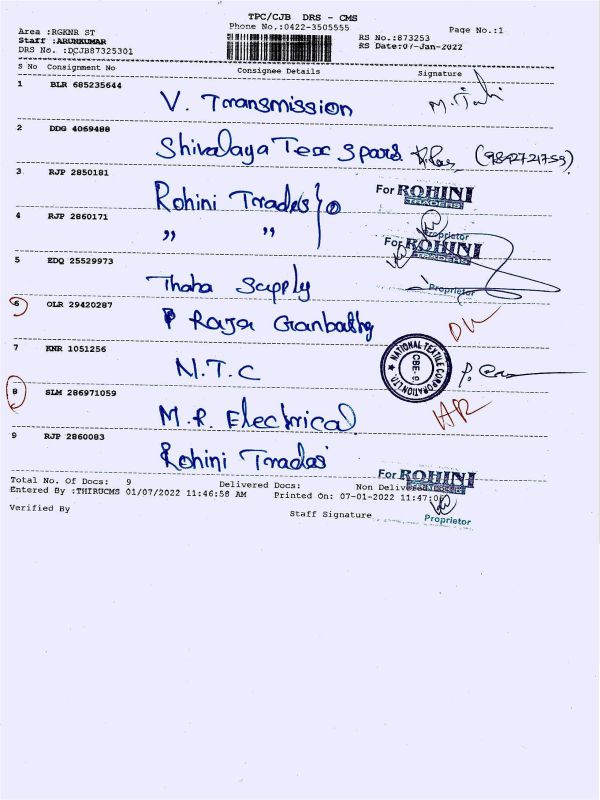 TPC/CJB DRS - CMS
Phone No.:0422-3505555
Page No.:1
Area :RGKNR ST
Staff :ARUNKUMAR
DRS No. :DCJB87325301
RS No.:873253
RS Date:07-Jan-2022
S No Consignment No Consignee Details Signature
1 BLR 685235644
V. Transmission
2 DDG 4069488
Shivalaya Tex Spares (9842721759)
3 RJP 2850181
Rohini Trades
For ROHINI TRADERS
Proprietor
4 RJP 2860171
” ”
For ROHINI TRADERS
Proprietor
5 EDQ 25529973
Thaha Supply
6 OLR 29420287
Raja Ganbathy
7 KNR 1051256
N.T.C
NATIONAL TEXTILE CORPORATION LTD
CBE-9
8 SLM 286971059
M.R. Electrical
9 RJP 2860083
Rohini Trades
For ROHINI TRADERS
Proprietor
Total No. Of Docs: 9 Delivered Docs: Non Delivered
Entered By :THIRUCMS 01/07/2022 11:46:58 AM Printed On: 07-01-2022 11:47:0
Verified By Staff Signature